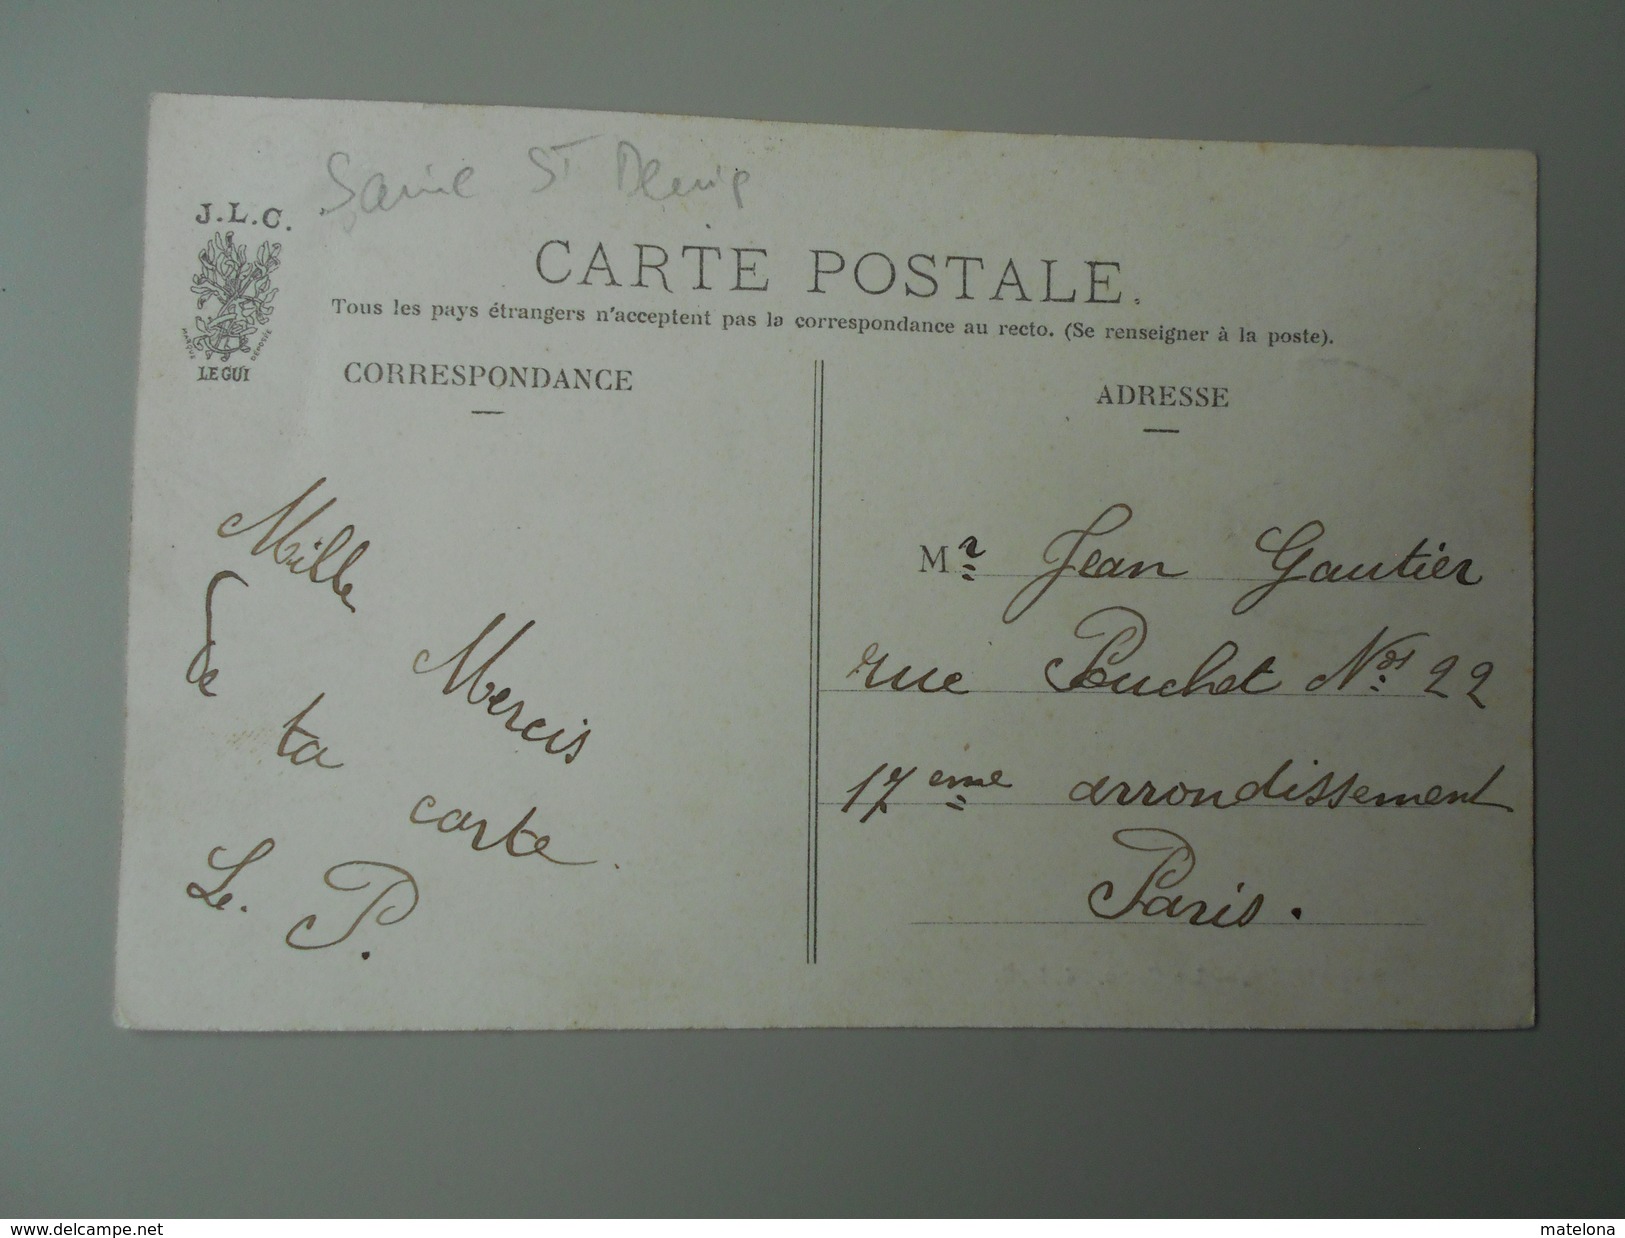 Saine St Denis
J.L.C.
MARQUE DÉPOSÉE
LE GUI
CARTE POSTALE.
Tous les pays étrangers n'acceptent pas la correspondance au recto. (Se renseigner à la poste).
CORRESPONDANCE
Mille Mercis
de ta carte.
Le. P.
ADRESSE
Mr Jean Gautier
rue Pouchet Nos 22
17eme arrondissement
Paris.
www.delcampe.net
matelona